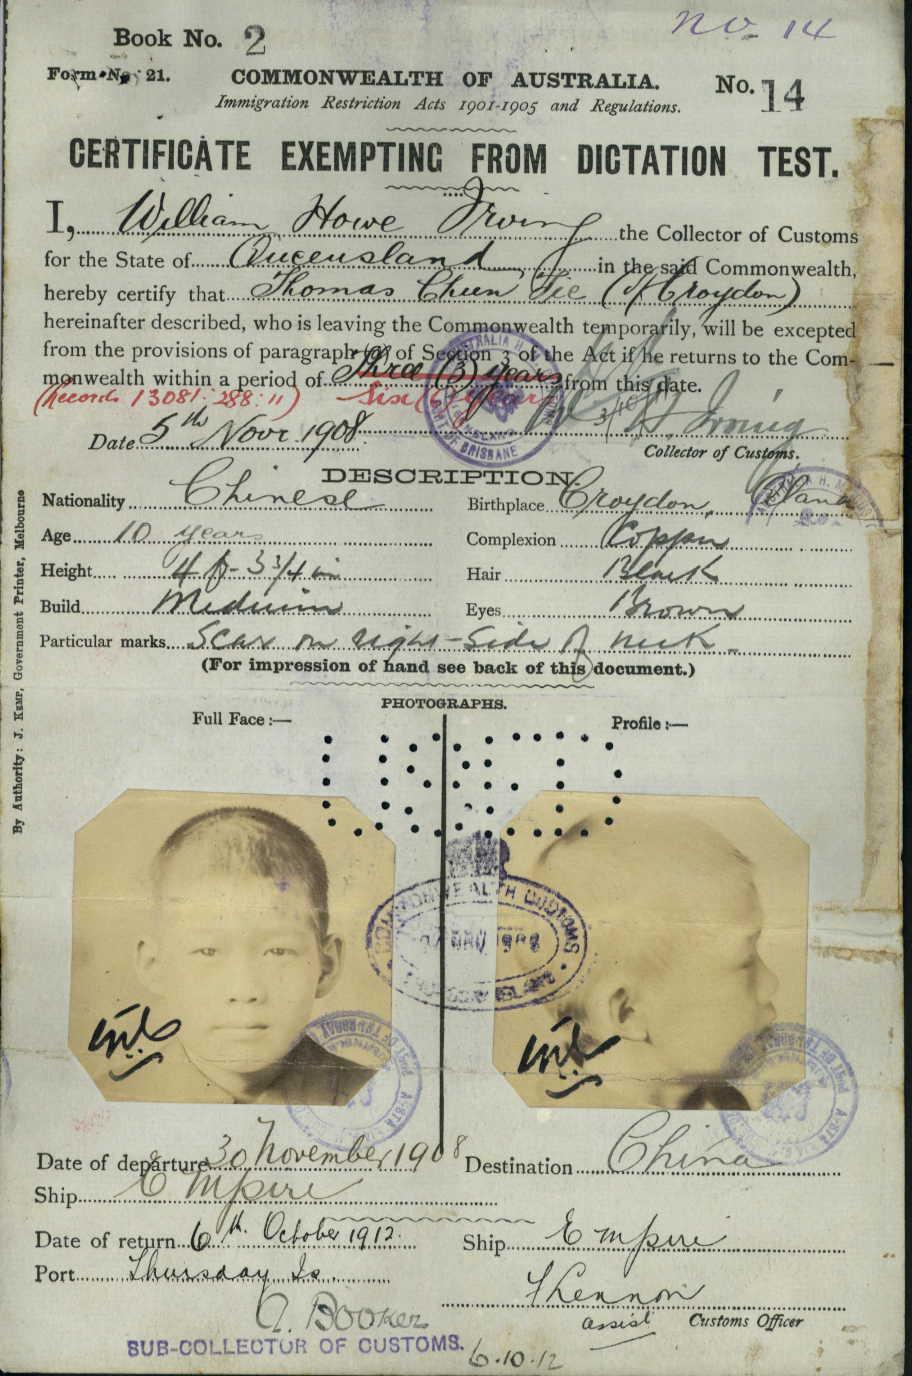 No. 14
Book No. 2
Form No. 21.
COMMONWEALTH OF AUSTRALIA.
No. 14
Immigration Restriction Acts 1901-1905 and Regulations.
CERTIFICATE EXEMPTING FROM DICTATION TEST.
I, William Howe Irving the Collector of Customs
for the State of Queensland in the said Commonwealth,
hereby certify that Thomas Cheen Fee (of Croydon)
hereinafter described, who is leaving the Commonwealth temporarily, will be excepted
from the provisions of paragraph (a) of Section 3 of the Act if he returns to the Com-
monwealth within a period of Three (3) years from this date.
(Records 13081·288·11) Six (6) years
3/10/11
Date 5th Novr 1908.
W H Irving
Collector of Customs.
DESCRIPTION.
Nationality Chinese
Birthplace Croydon, Qland
Age 10 years
Complexion Copper
Height 4 ft - 3 3/4 in
Hair Black
Build Medium
Eyes Brown
Particular marks Scar on right-side of neck -
(For impression of hand see back of this document.)
PHOTOGRAPHS.
Full Face :—
Profile :—
By Authority: J. Kemp, Government Printer, Melbourne
COMMONWEALTH CUSTOMS
Date of departure 30 November 1908
Destination China
Ship Empire
Date of return 6th October 1912.
Ship Empire
Port Thursday Is.
Customs Officer
assist
G. Booker
SUB-COLLECTOR OF CUSTOMS.
6.10.12